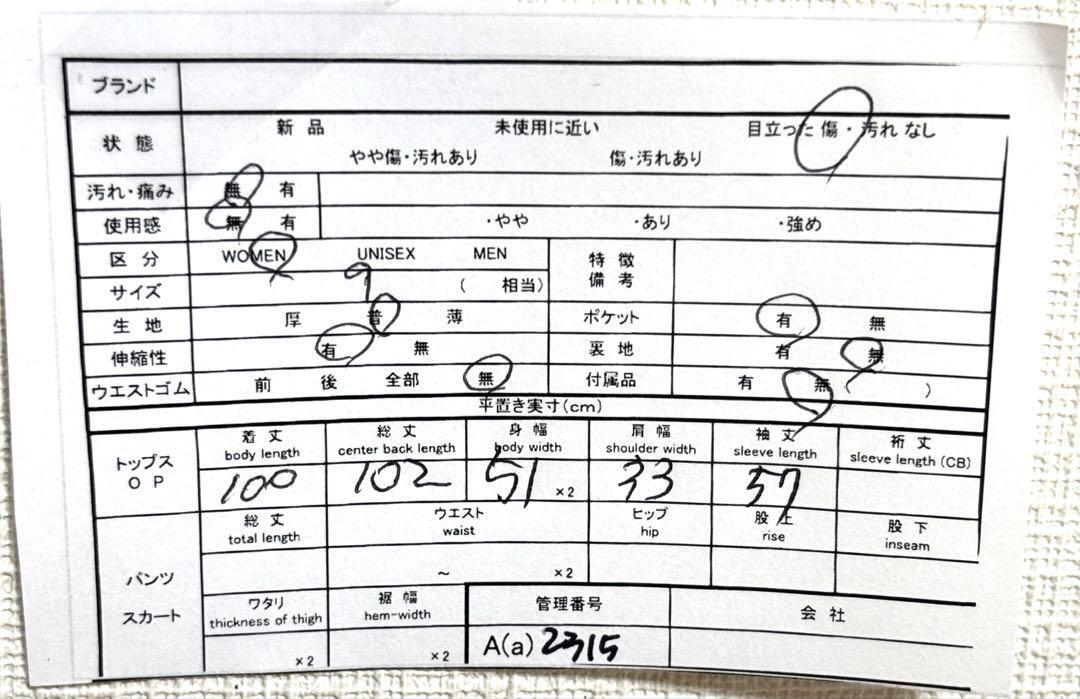 ブランド
状態 新品 未使用に近い 目立った傷・汚れなし
やや傷・汚れあり 傷・汚れあり
汚れ・痛み 無 有
使用感 無 有 ・やや ・あり ・強め
区分 WOMEN UNISEX MEN 特徴備考
サイズ 9 ( 相当)
生地 厚 普 薄 ポケット 有 無
伸縮性 有 無 裏地 有 無
ウエストゴム 前 後 全部 無 付属品 有 無( )
平置き実寸(cm)
トップス OP 着丈 総丈 身幅 肩幅 袖丈 裄丈
body length center back length body width shoulder width sleeve length sleeve length (CB)
100 102 51 ×2 33 57
パンツ スカート 総丈 ウエスト ヒップ 股上 股下
total length waist hip rise inseam
～ ×2
ワタリ 裾幅 管理番号 会社
thickness of thigh hem-width
×2 ×2 A(a) 2315